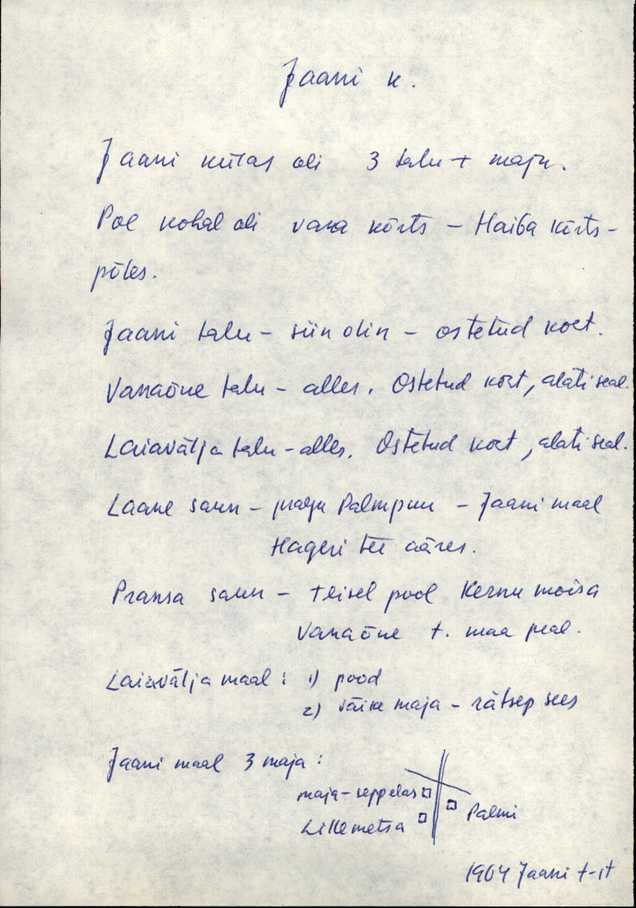 Jaani k.
Jaani külas oli 3 talu + maju.
Poe kohal oli vana kõrts – Haiba kõrts –
põles.
Jaani talu – siin olin – ostetud koet.
Vanaõue talu – alles. Ostetud koet, alati seal.
Laiavälja talu – alles. Ostetud koet, alati seal.
Laane saun – praegu Palmpuu – Jaani maal
Hageri tee ääres.
Pransa saun – teisel pool Kernu mõisa
Vanaõue t. maa peal.
Laiavälja maal: 1) pood
2) väike maja – rätsep sees
Jaani maal 3 maja:
maja – seppelas
Lillemetsa
Palmi
1904 Jaani t-st